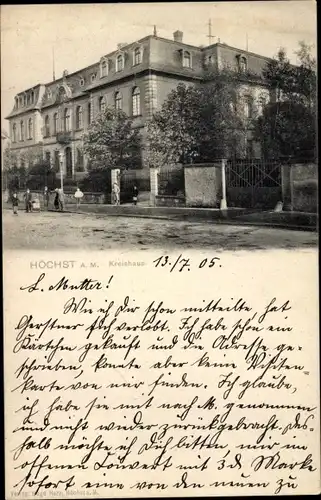 HÖCHST A. M. Kreishaus 13./7. 05.
L. Mutter!
Wie ich Dir schon mitteilte, hat
Gerstner sich verlobt. Ich habe schon ein
Kärtchen gekauft und die Adresse ge-
schrieben, konnte aber keine Visiten-
karte von mir finden. Ich glaube,
ich habe sie mit nach M. genommen
und nicht wieder zurückgebracht. Des-
halb möchte ich Dich bitten, mir im
offenen Kouwert mit 3 d. Marke
sofort eine von den neuen zu